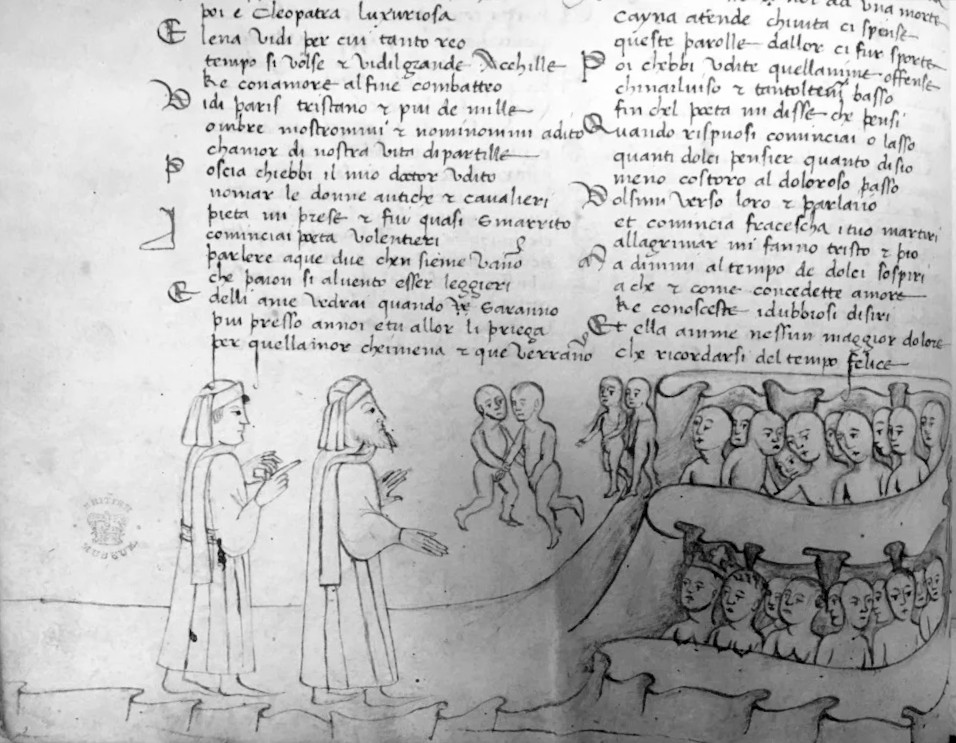 poi e Cleopatra luxuriosa
Elena vidi per cui tanto reo
tempo si volse & vidilgrande Acchille
ke conamore alfine combatteo
Vidi paris tristano & piu de mille
ombre mostrommi & nominommi adito
chamor di nostra vita dipartille
Poscia chiebbi il mio doctor udito
nomar le donne antiche & cavalieri
pieta mi prese & fui quasi smarrito
I cominciai poeta volentieri
parlere aque due chen sieme vano
che paion si alvento esser leggieri
E delli anie vedrai quando saranno
piu presso annoi etu allor li priega
per quellamor cheimena & que verrano
una morte
Cayna atende chivita ci spense
queste parolle dallor ci fur sporte
Poi chebbi udite quellanime offense
chinailuiso & tantoltenni basso
fin chel poeta mi disse che pensi
Quando rispuosi cominciai o lasso
quanti dolci pensier quanto disio
meno costoro al doloroso passo
Volsimi verso loro & parlario
et comincia fracescha ituo martiri
allagrimar mi fanno tristo & pio
Ma dimmi altempo de dolci sospiri
ache & come concedette amore
ke conosceste idubbiosi disiri
Et ella amme nessun maggior dolore
che ricordarsi del tempo felice
BRITISH
MUSEUM